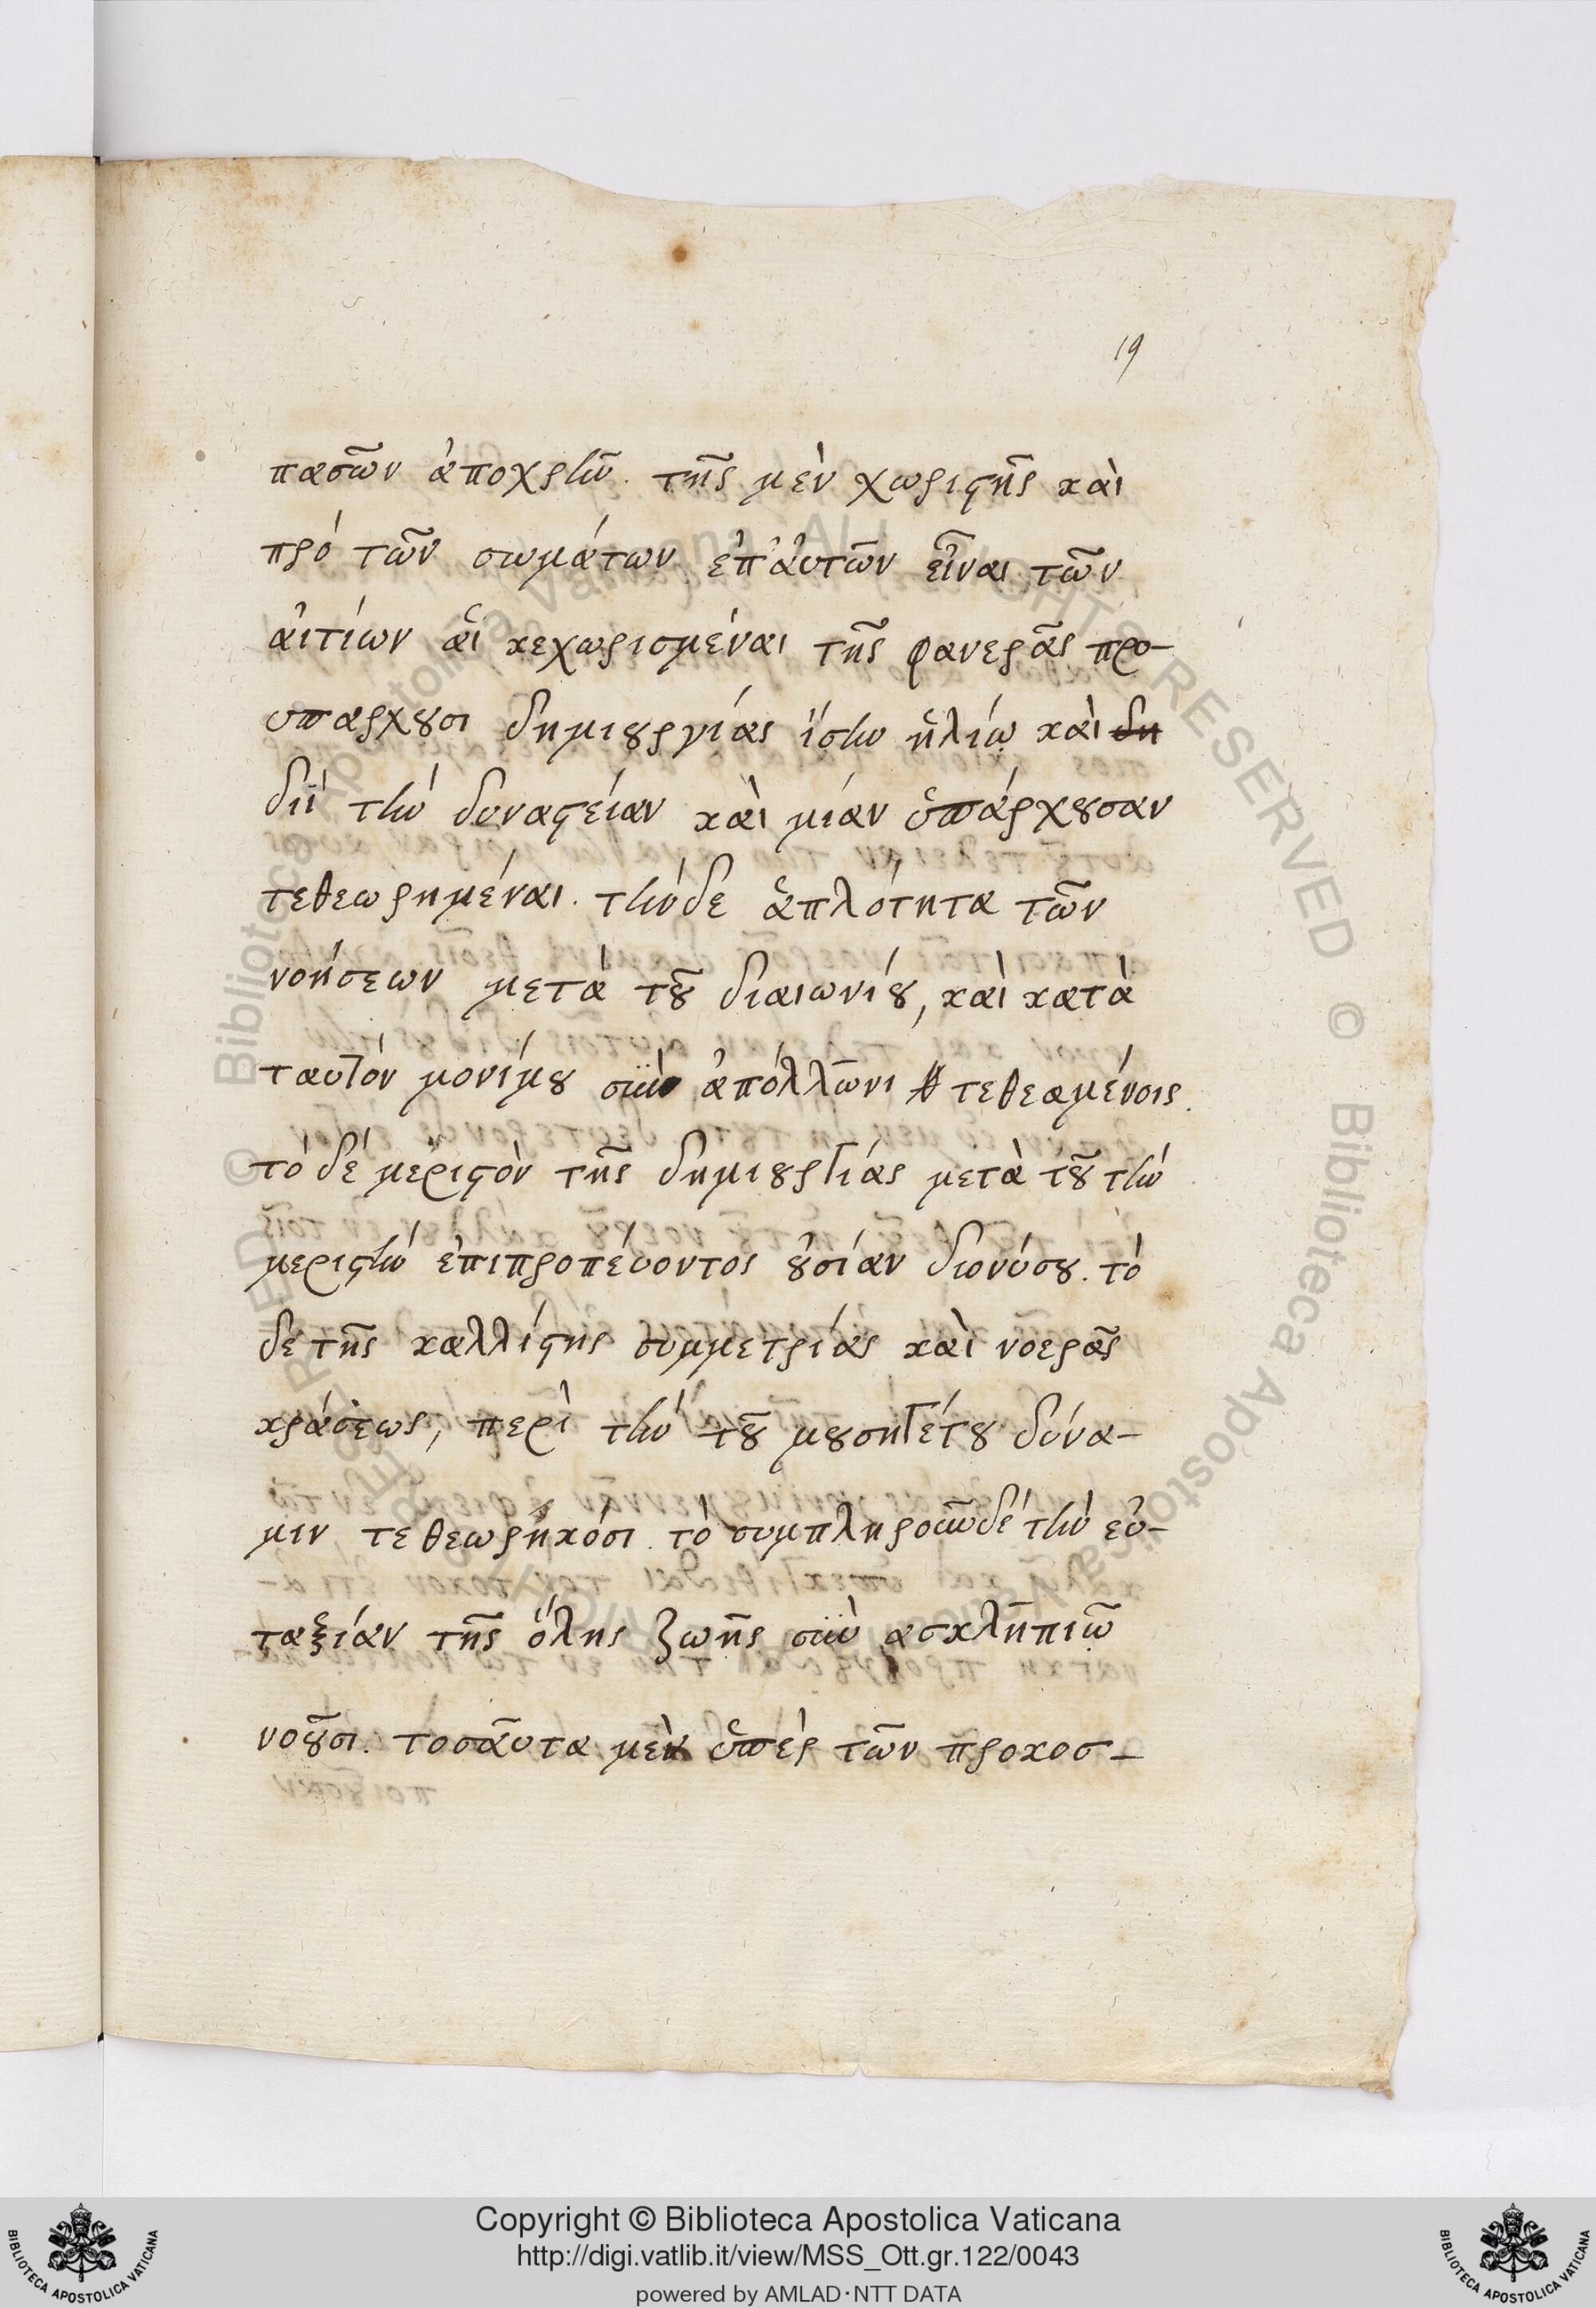 19
πασῶν ἀποχρῆν. τῆς μὲν χωριστῆς καὶ
πρό τῶν σωμάτων ἐπ' ἀυτῶν εἶναι τῶν
ἀιτίων ἁὶ κεχωρισμέναι τῆς φανερᾶς προ-
υπαρχουσι δημιουργίας ἵσην ἡλίῳ καὶ δη
διῒ τὴν δυναστείαν καὶ μίαν ὑπάρχουσαν
τεθεωρημέναι. τὴνδε ἁπλότητα τῶν
νοήσεων μετὰ τοῦ διαιωνίου, καὶ κατὰ
ταυτὸν μονίμου σὺν ἀπόλλωνι τεθεαμένοις.
τὸ δέ μεριστὸν τῆς δημιουργίας μετὰ τοῦ τὴν
μεριστὴν ἐπιπροπέυοντος οὐσίαν διονύσου. τὸ
δε τῆς καλλίστης συμμετρίας καὶ νοερᾶς
κράσεως, περὶ τὴν τοῦ μουσηγέτου δύνα-
μιν τεθεωρηκόσι. τὸ συμπληροῦνδέ τὴν εὐ-
ταξίαν τῆς ὅλης ζωῆς σὺν ασκληπιῷ
νοοῦσι. τοσᾶυτα μὲν ὑπὲρ τῶν προκοσ-
Copyright © Biblioteca Apostolica Vaticana
http://digi.vatlib.it/view/MSS_Ott.gr.122/0043
powered by AMLAD·NTT DATA
BIBLIOTECA APOSTOLICA VATICANA
BIBLIOTECA APOSTOLICA VATICANA